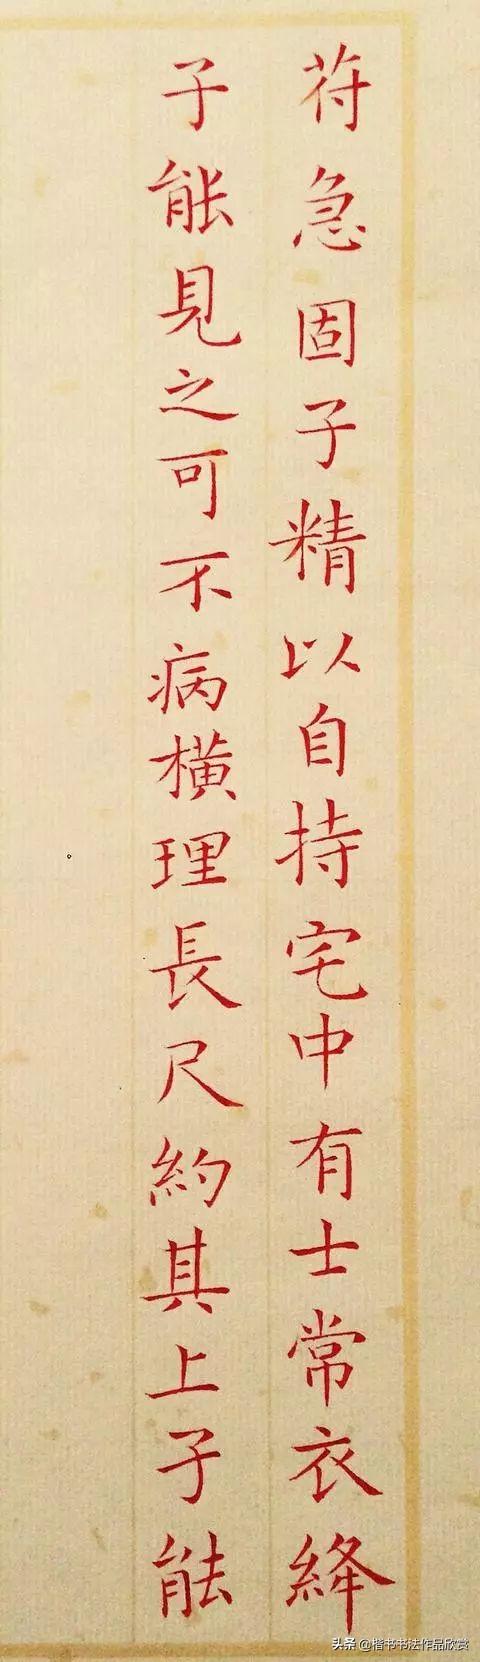 苻急固子精以自持宅中有士常衣絳
子能見之可不病橫理長尺約其上子能
头条@楷书书法作品欣赏